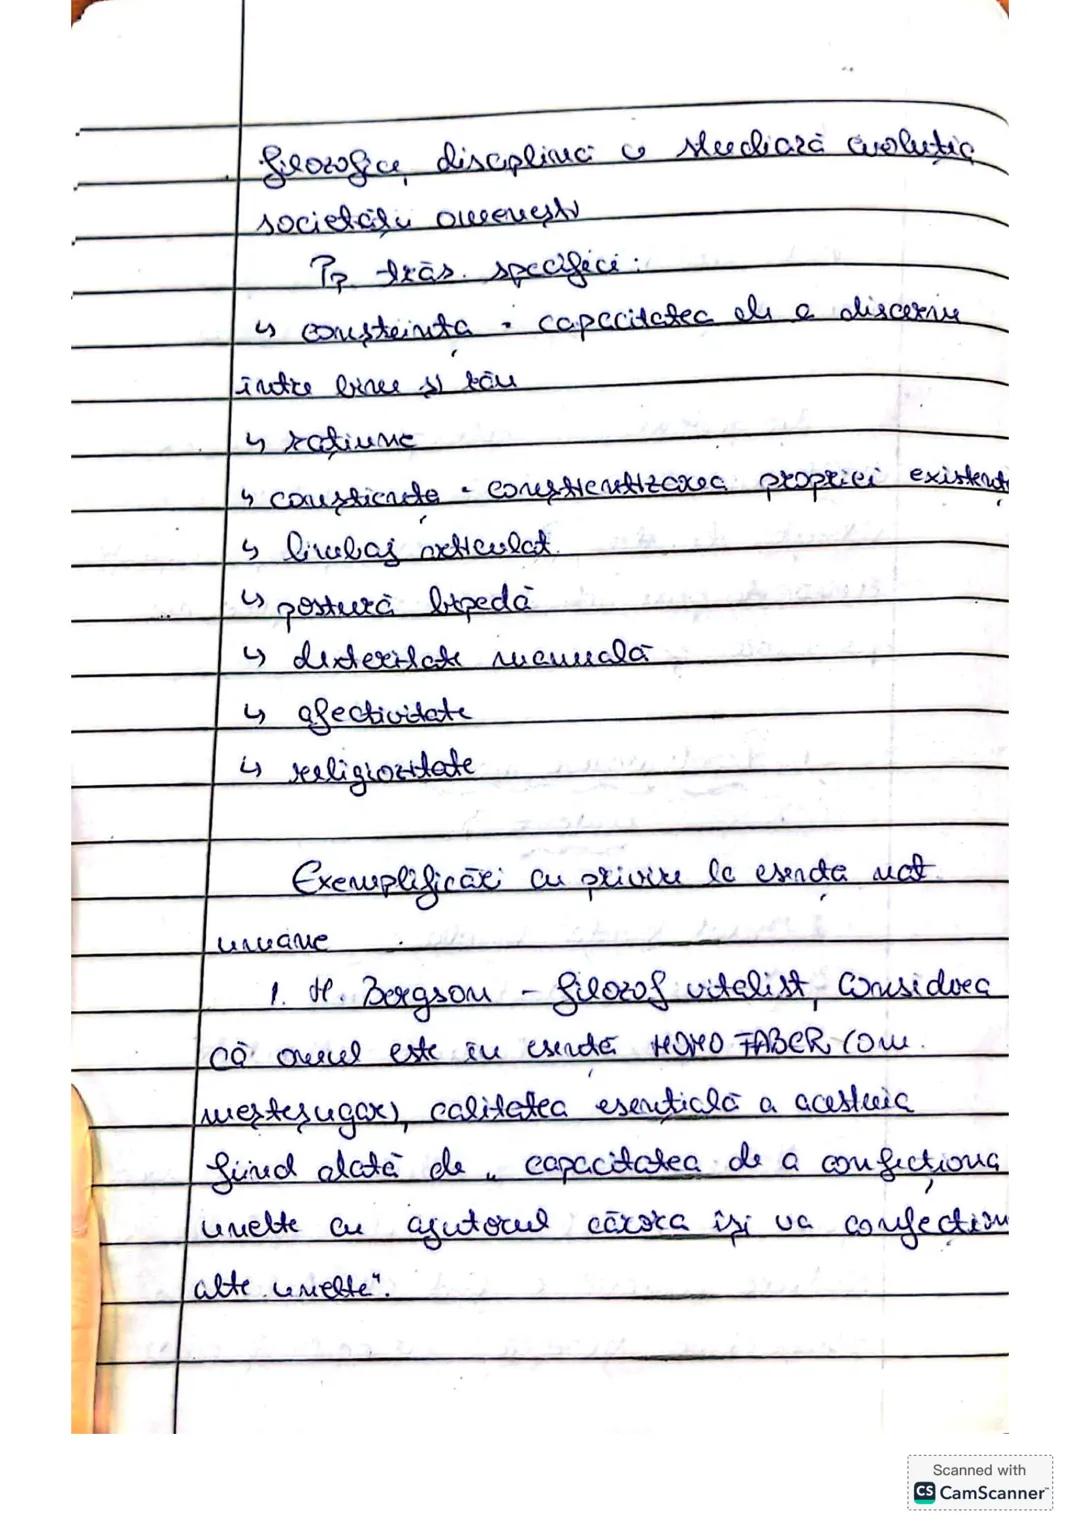 filozofică, disciplină ce studiază evoluția
societății omenești
Pp trăs. specifici:
↳ conșteința - capacitatea de a discerne
între bine și rău
↳ rațiune
↳ conștiența - conștientizarea propriei existenț
↳ limbaj articulat
↳ postură bipedă
↳ dexteritate manuală
↳ afectivitate
↳ religiozitate
Exemplificări cu privire la esența nat
umane
1. H. Bergson - filozof vitalist, considera
că omul este în esență HOMO FABER (om
meșteșugar), calitatea esențială a acestuia
fiind dată de „capacitatea de a confecționa
unelte cu ajutorul cărora își va confecțion
alte unelte".
Scanned with
CS CamScanner